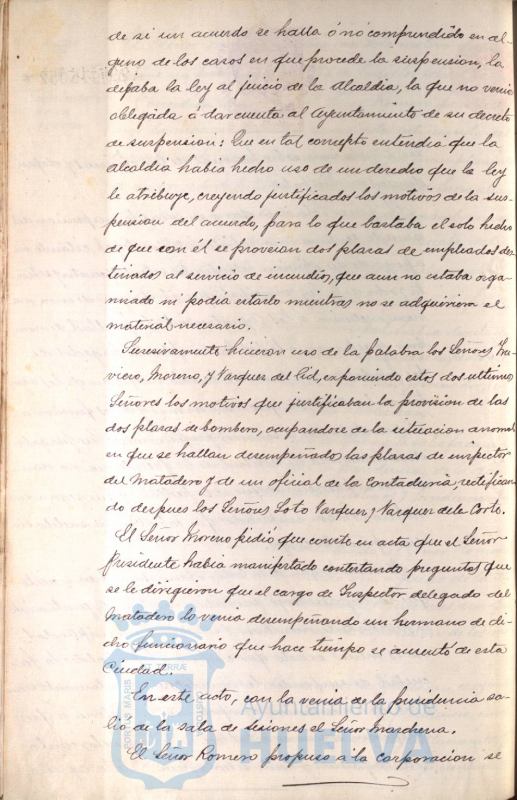 de si un acuerdo se halla ó nó comprendido en al-
guno de los casos en que procede la suspension, la
dejaba la ley al juicio de la Alcaldia, la que no venia
obligada á dar cuenta al Ayuntamiento de su decreto
de suspension: Que en tal concepto entendia que la
Alcaldia habia hecho uso de un derecho que la ley
le atribuye, creyendo justificados los motivos de la sus-
pension del acuerdo, para lo que bastaba el solo hecho
de que con él se proveian dos plazas de empleados des-
tinados al servicio de incendios, que aun no estaba orga-
nizado ni podia estarlo mientras no se adquiriera el
material necesario.
Sucesivamente hicieron uso de la palabra los Señores
Moreno, y Vazquez del Cid, exponiendo estos dos ultimos
Señores los motivos que justificaban la provision de las
dos plazas de bombero, ocupandose de la situacion anormal
en que se hallan desempeñados las plazas de inspector
del Matadero y de un oficial de la Contaduria, rectifican-
do despues los Señores Soto Vazquez y Vazquez de la Corte.
El Señor Moreno pidió que conste en acta que el Señor
Presidente habia manifestado contestando preguntas que
se le dirigieron que el cargo de Inspector delegado del
Matadero lo venia desempeñando un hermano de di-
cho funcionario que hace tiempo se ausentó de esta
Ciudad.
En este acto, con la venia de la presidencia sa-
lió de la sala de sesiones el Señor Marchena.
El Señor Romero propuso á la corporacion se
PORTUS MARIS
Ayuntamiento de
HUELVA